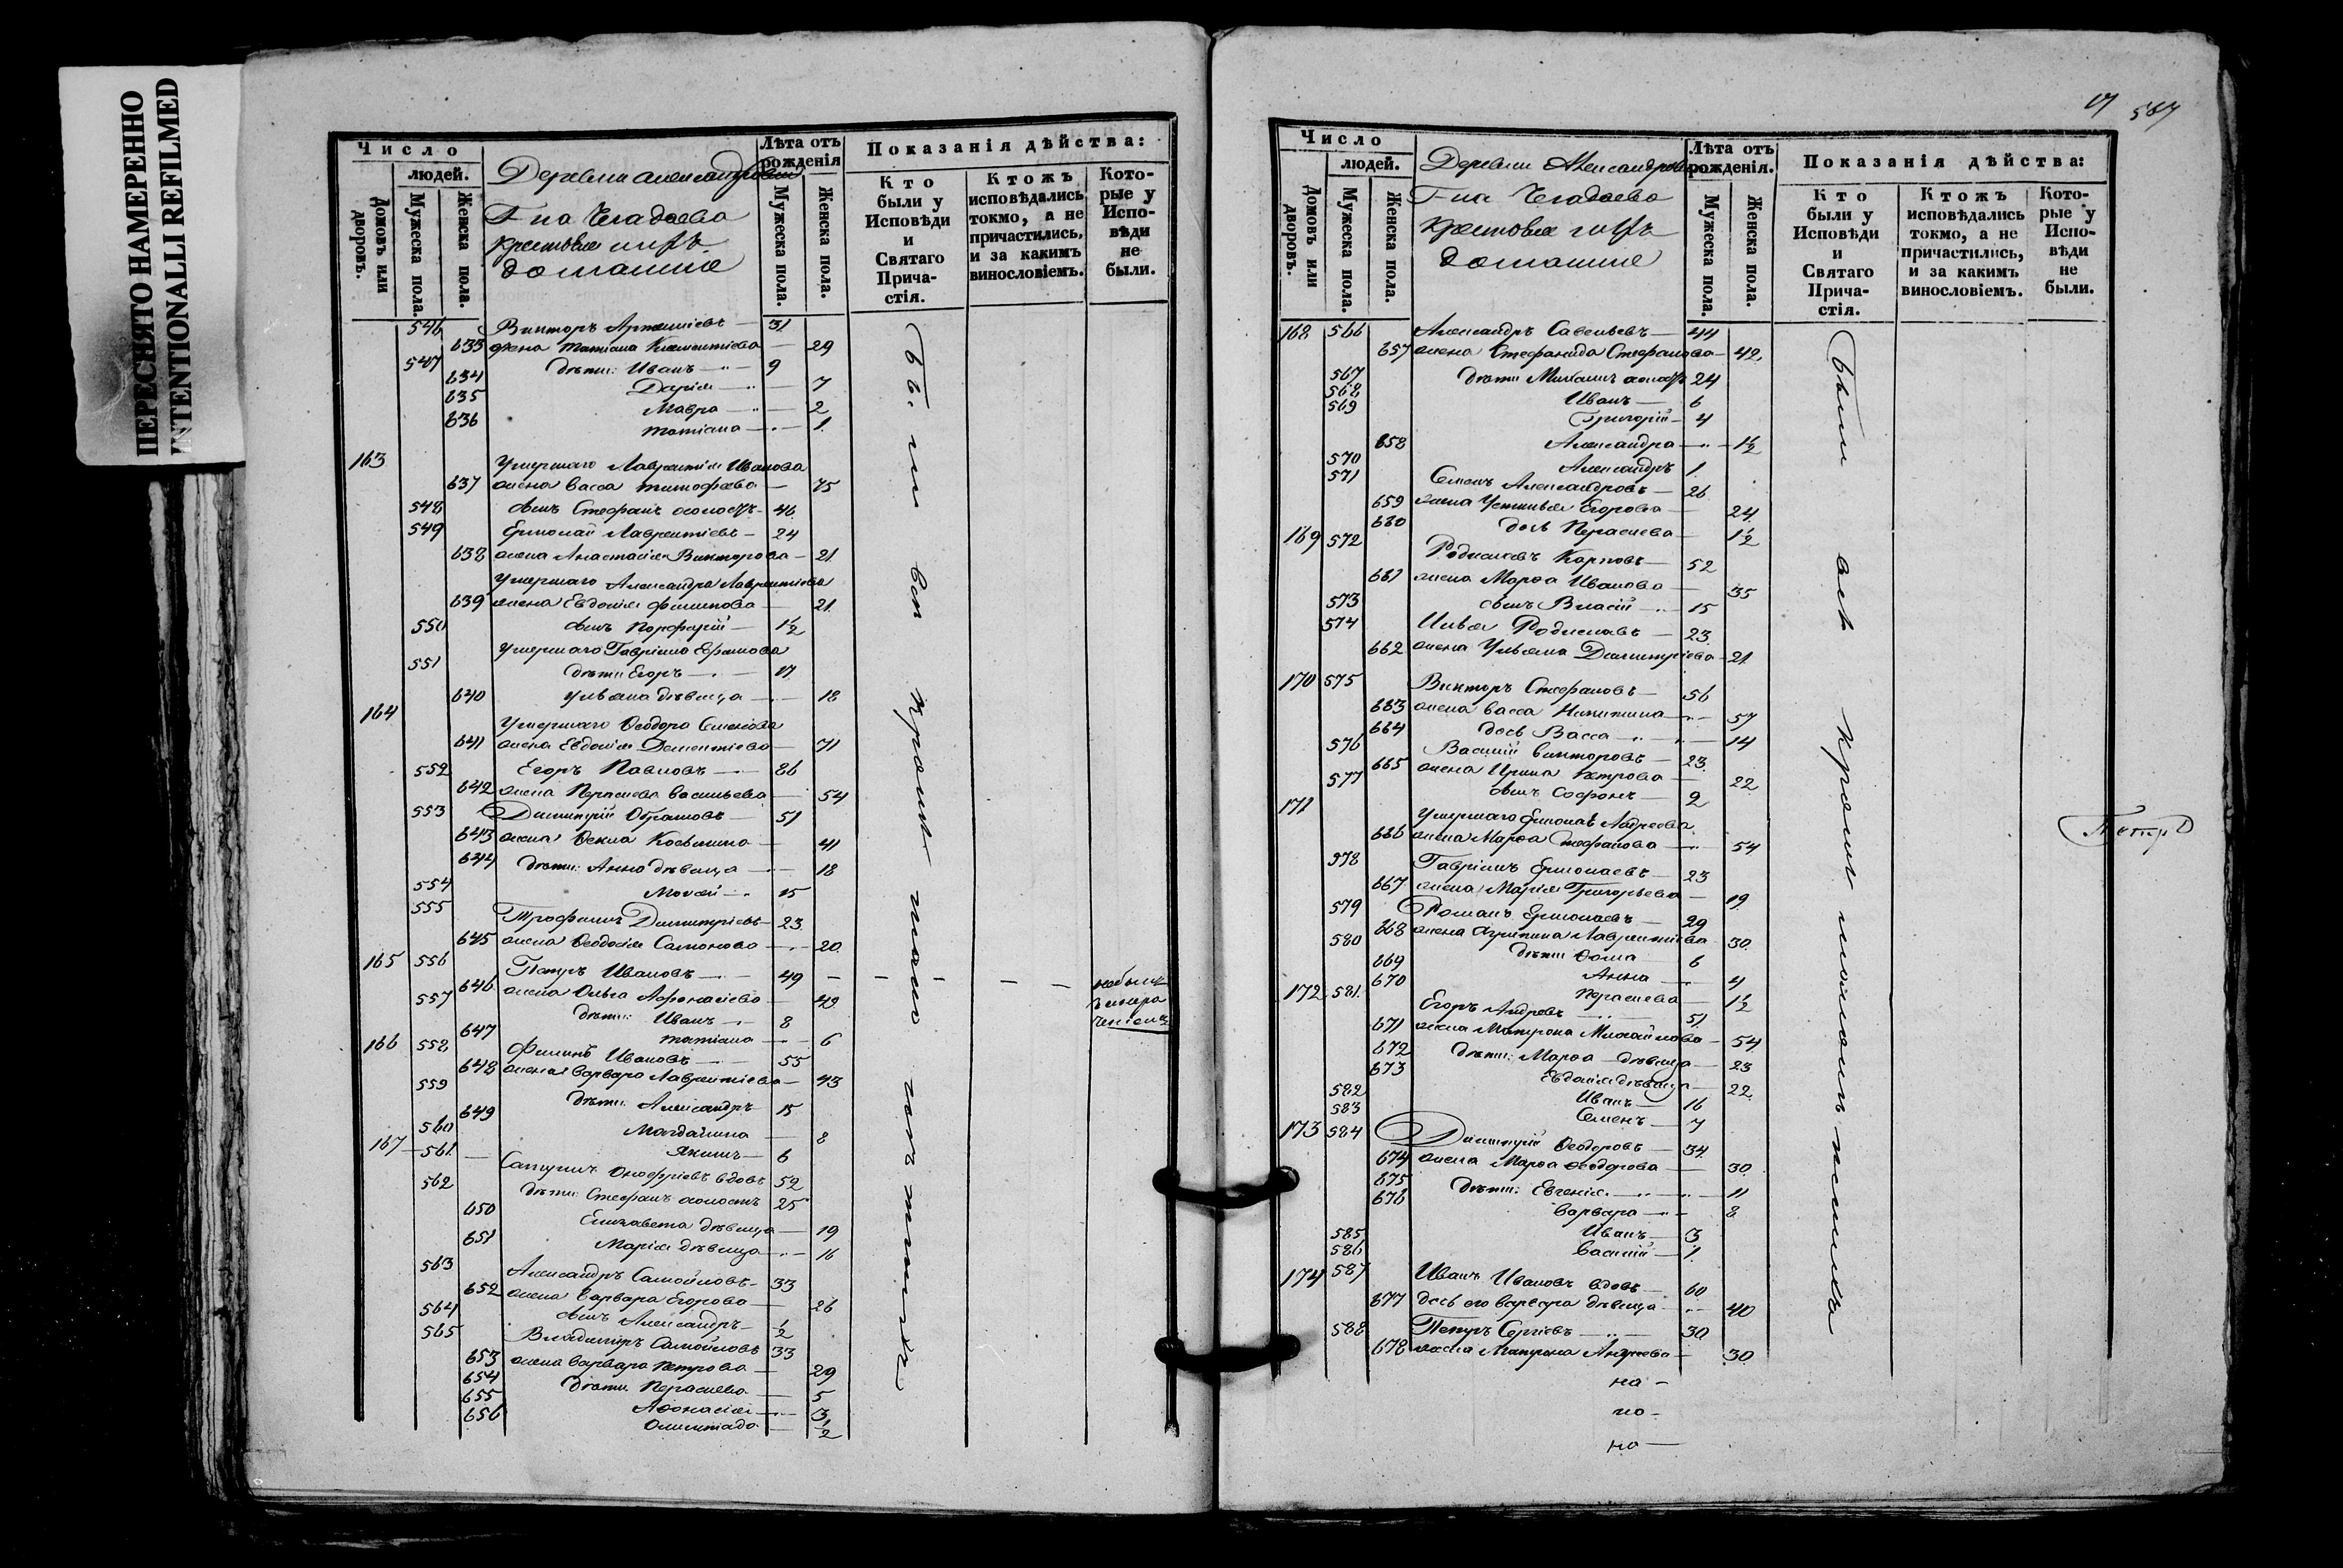 ПЕРЕСНЯТО НАМЕРЕННО
INTENTIONALLI REFILMED
Число
людей.
Домовъ или дворовъ.
Мужеска пола.
Женска пола.
Деревни Александровки
Г-на Чегодаева
крестьяне
домашние
Лѣта отъ рожденія
Мужеска пола.
Женска пола.
Показанія дѣйства:
Кто были у Исповѣди и Святаго Прича-стія.
Ктожъ исповѣдались токмо, а не причастились, и за какимъ винословіемъ.
Кото-рые у Испо-вѣди не были.
546 Викторъ Артемиевъ 31
633 жена Татиана Климентиева 29
547 дѣти: Иванъ 9
634 Дария 7
635 Мавра 2
636 Татиана 1
163 Умершаго Лаврентия Иванова
637 жена Васса Тимофеева 75
548 сынъ Стефанъ холостъ 46
549 Ермолай Лаврентиевъ 24
638 жена Анастасия Викторова 21
Умершаго Александра Лаврентиева
639 жена Евдокия Филипова 21
550 сынъ Порфирий 1½
Умершаго Гаврила Ефимова
551 дѣти Егоръ 17
640 Ульяна дѣвица 18
164 Умершаго Ѳеодора Семенова
641 жена Евдокия Дементиева 71
552 Егоръ Павловъ 86
642 жена Параскева Васильева 54
553 Димитрий 51
643 жена Ѳекла Косьмина 41
644 дѣти: Анна дѣвица 18
554 Моисей 15
555 Трофимъ Димитриевъ 23
645 жена Ѳеодосия 20
165 556 Петръ Ивановъ 49
646 жена Ольга Афонасиева 49
557 дѣти: Иванъ 8
647 Татиана 6
166 558 Филипъ Ивановъ 55
648 жена Варвара Лаврентиева 43
559 дѣти: Александръ 15
649 Магдалина 8
560 Якимъ 6
167 561 Онофриевъ вдовъ 52
562 дѣти: Стефанъ холостъ 25
650 Елизавета дѣвица 19
651 Мария дѣвица 16
563 Александръ Самойловъ 33
652 жена Варвара Егорова 26
564 сынъ Александръ ½
565 Владимиръ Самойловъ 33
653 жена Варвара Петрова 29
654 дѣти Параскева 5
655 Афонасия 3
656 Олимпиада ½
Были вси кромѣ токмо
небылъ
17 567
Число
людей.
Домовъ или дворовъ.
Мужеска пола.
Женска пола.
Деревни Александровки
Г-на Чегодаева
крестьяне
домашние
Лѣта отъ рожденія.
Мужеска пола.
Женска пола.
Показанія дѣйства:
Кто были у Исповѣди и Святаго Прича-стія.
Ктожъ исповѣдались токмо, а не причастились, и за какимъ винословіемъ.
Кото-рые у Испо-вѣди не были.
168 566 Александръ Савельевъ 44
657 жена Стефанида Стефанова 42
567 дѣти Михаилъ холостъ 24
568 Иванъ 6
569 Григорий 4
658 Александра 1½
570 Александръ 1
571 Семенъ Александровъ 26
659 жена Устинья Егорова 24
660 дочь Параскева 1½
169 572 Родионъ Карповъ 52
661 жена Марѳа Иванова 35
573 сынъ Власий 15
574 Илья Родионовъ 23
662 жена Ульяна Димитриева 21
170 575 Викторъ Стефановъ 56
663 жена Васса Никитина 57
664 дочь Васса 14
576 Василий Викторовъ 23
665 жена Ирина Петрова 22
577 сынъ Софронъ 2
171 Умершаго Ермолая Андреева
666 жена Марѳа Стефанова 54
578 Гаврилъ Ермолаевъ 23
667 жена Мария Григорьева 19
579 Романъ Ермолаевъ 29
668 жена Агрипина Лаврентиева 30
580 дѣти Ѳома 6
669 Анна 4
670 Параскева 1½
172 581 Егоръ Андреевъ 51
671 жена Матрона Михайлова 54
672 дѣти: Марѳа дѣвица 23
673 Евдокия дѣвица 22
582 Иванъ 16
583 Семенъ 7
173 584 Димитрий Ѳеодоровъ 34
674 жена Марѳа Ѳеодорова 30
675 дѣти: Евгения 11
676 Варвара 8
585 Иванъ 3
586 Василий 1
174 587 Иванъ Ивановъ вдовъ 60
677 дочь его Варвара дѣвица 40
588 Петръ Сергиевъ 30
678 жена Матрона Андреева 30
Были всѣ кромѣ
на
на
на